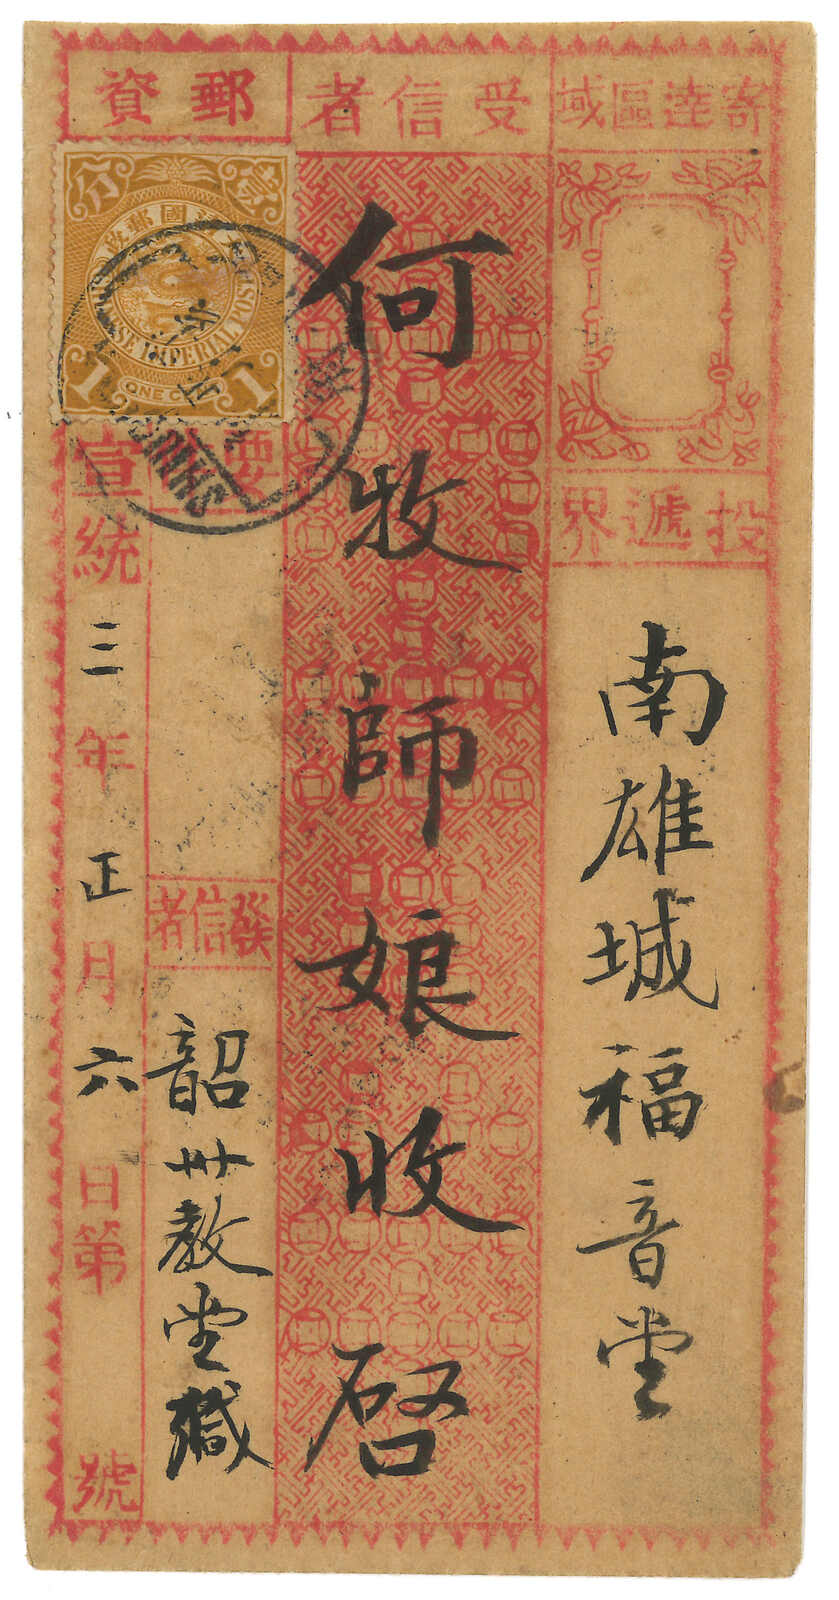 寄達區域
投遞界
南雄城福音堂
受信者
何牧師娘收啓
郵資
壹分
CHINESE IMPERIAL POST
1 ONE CENT 1
發信者
韶州教堂緘
宣統三年正月六日第
號